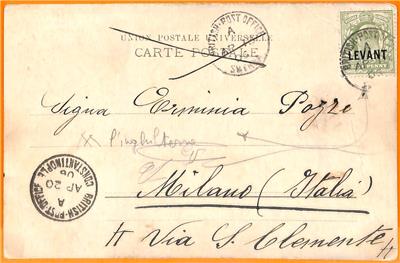 UNION POSTALE UNIVERSELLE
CARTE POSTALE
BRITISH·POST·OFFICE
A
AP
SM
LEVANT
PENNY
Signa Erminia Pozzo
Milano (Italia)
Via S. Clemente
BRITISH·POST·OFFICE
A
AP 20
06
CONSTANTINOPLE